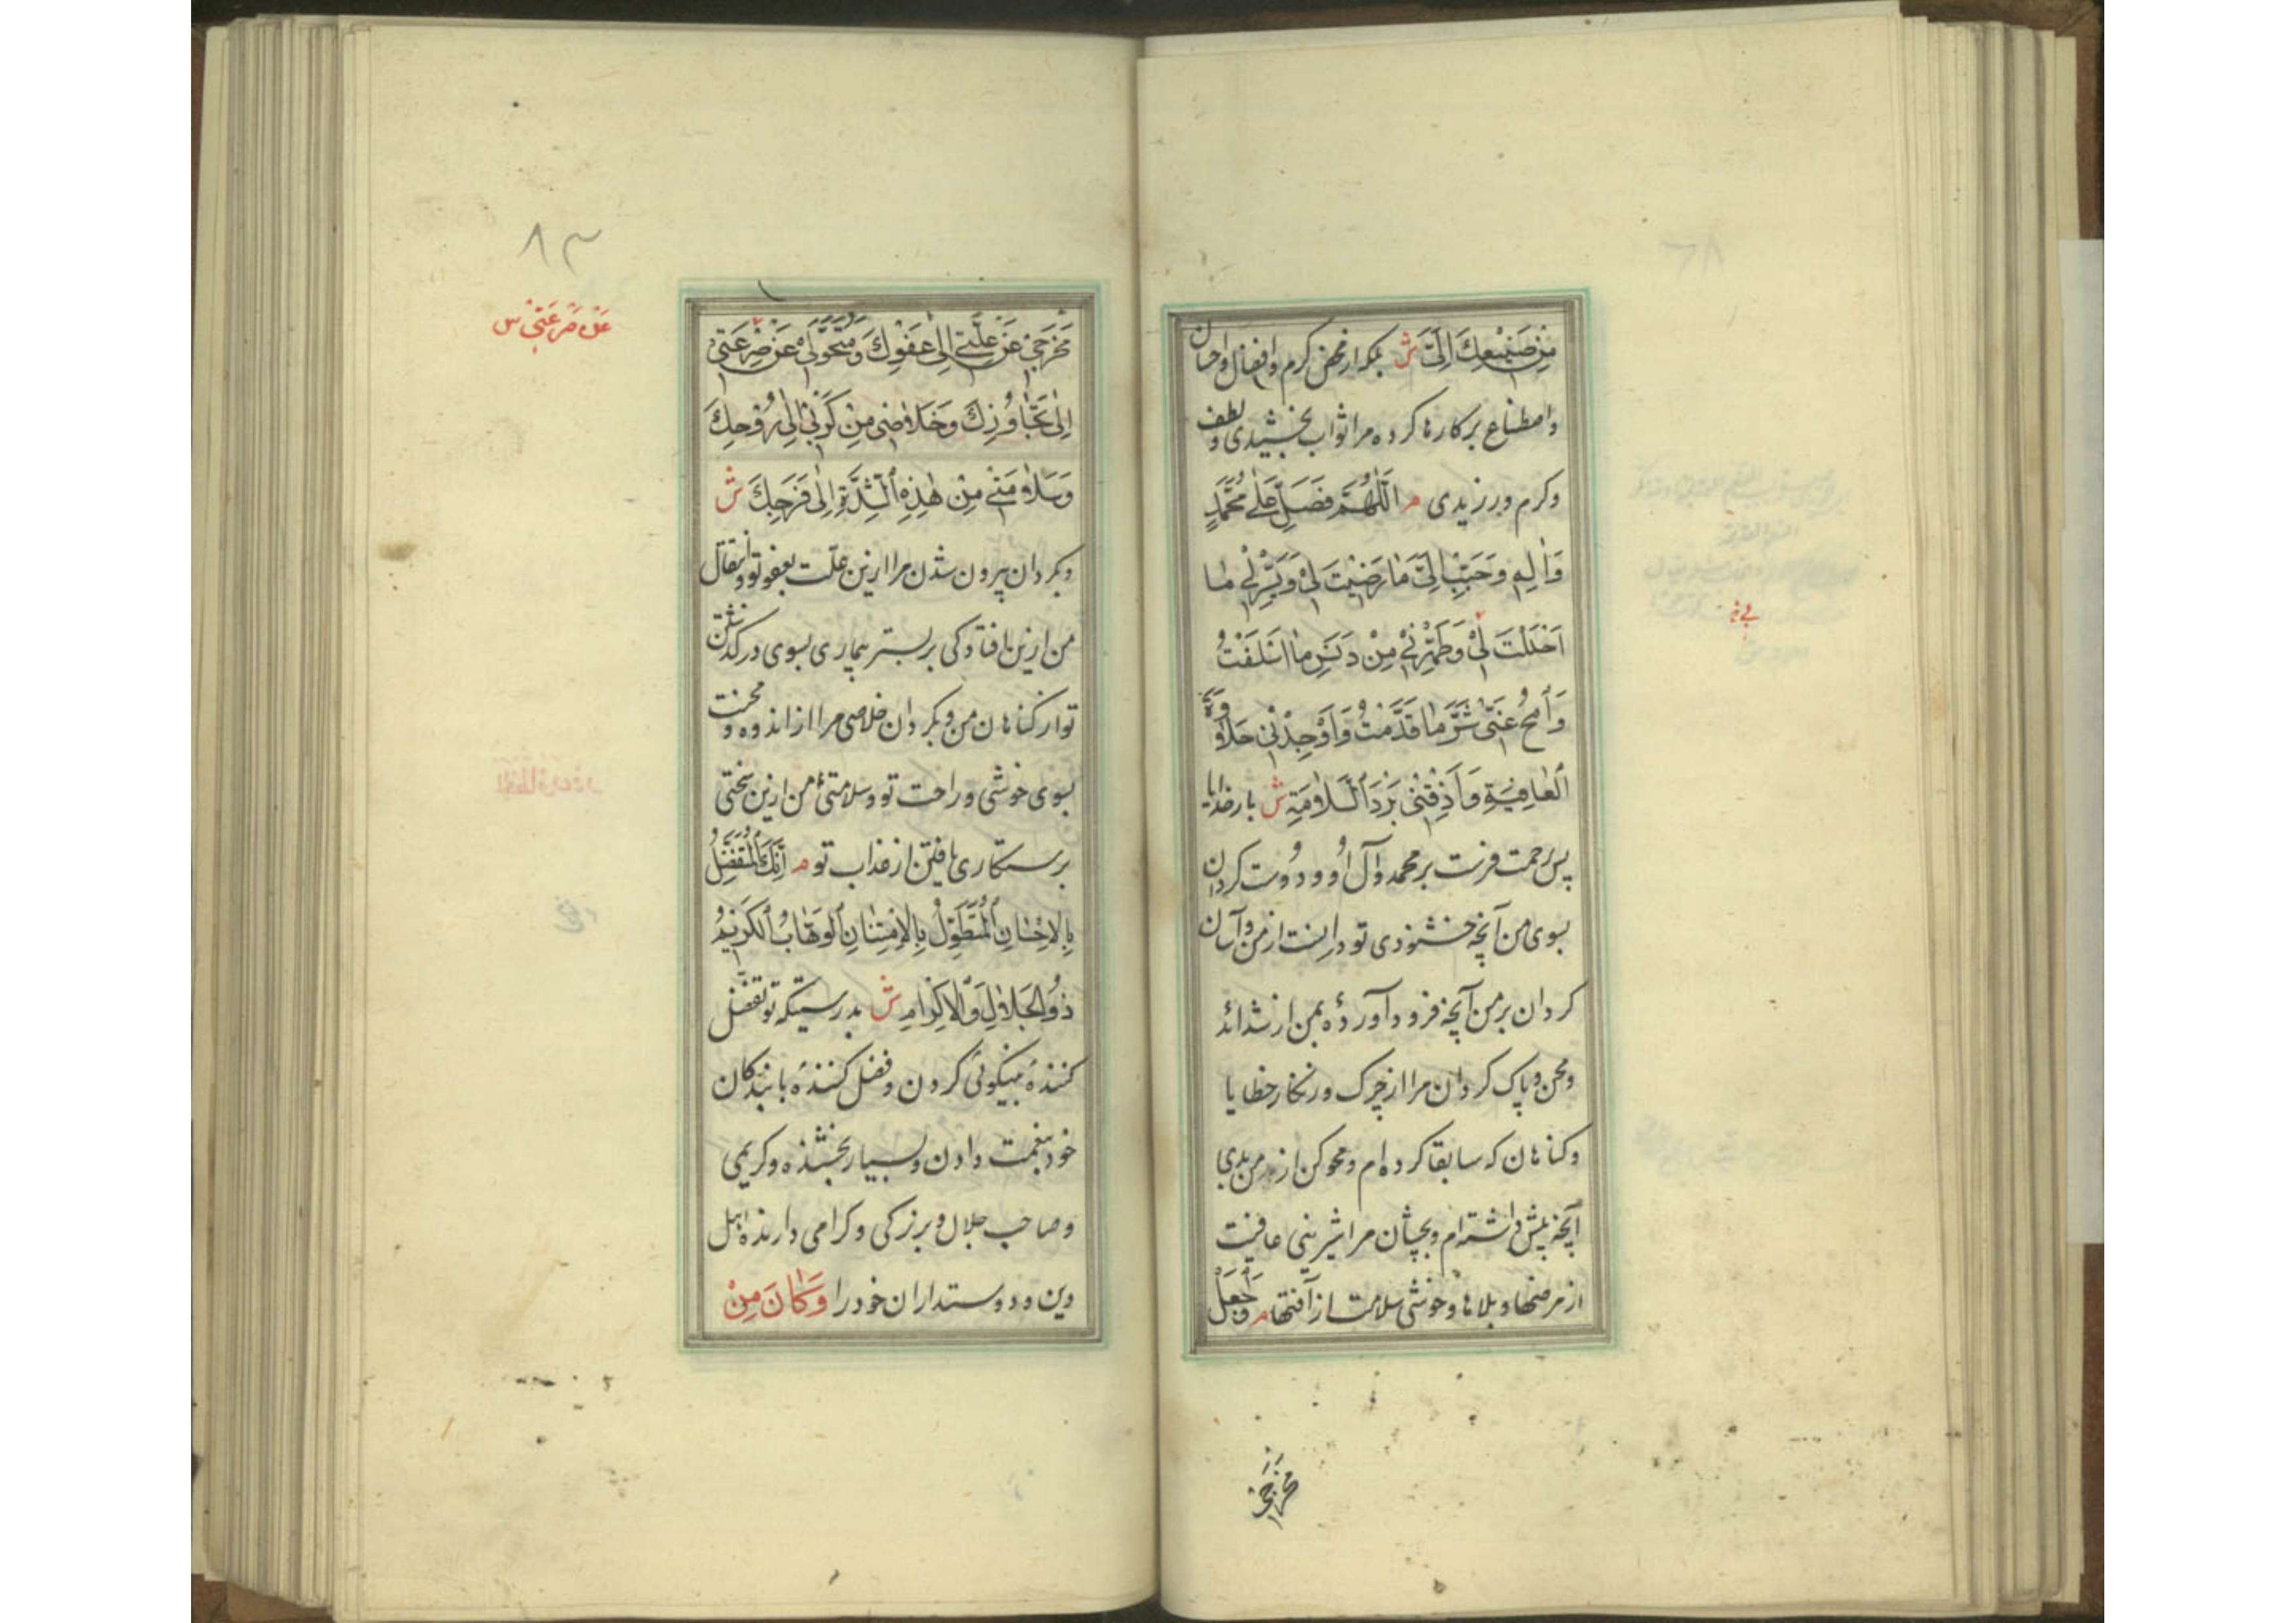 مِنْ صَنِيعِكَ اِلَيَّ ش بلکه از محض کرم و افضال و احسان
و اصطناع بر کارها کرده مرا ثواب بخشیدی و لطف
و کرم ورزیدی م اَللّٰهُمَّ فَصَلِّ عَلٰى مُحَمَّدٍ
وَاٰلِهِ وَحَبِّبْ اِلَيَّ مَا رَضِيْتَ لِيْ وَيَسِّرْ لِيْ مَا
اَحْلَلْتَ لِيْ وَطَهِّرْنِيْ مِنْ دَنَسِ مَا اَسْلَفْتُ
وَاَمْحُ عَنِّيْ شَرَّ مَا قَدَّمْتُ وَاَوْجِدْنِيْ حَلَاوَةَ
الْعَافِيَةِ وَاَذِقْنِيْ بَرْدَ السَّلَامَةِ ش بار خدایا
پس رحمت فرست بر محمد و آل او و دوست کردان
بسوی من آنچه خشنودی تو در انست از من و آسان
کردان بر من آنچه فرود آوردهٔ بمن از شدائد
و محن و پاک کردان مرا از چرک و زنکار خطایا
و کناهان که سابقا کرده ام و محو کن از من بدی
آنچه پیش داشته ام و بچشان مرا شیرینی عافیت
از مرضها و بلاها و خوشی سلامت از آفتها م وَاجْعَلْ
مَخْرَجِيْ
٨٣
عَنْ صَرْعَتِيْ س
مَخْرَجِيْ عَنْ عِلَّتِيْ اِلٰى عَفْوِكَ وَمُتَحَوَّلِيْ عَنْ صِرْعَتِيْ
اِلٰى تَجَاوُزِكَ وَخَلَاصِيْ مِنْ كَرْبِيْ اِلٰى رَوْحِكَ
وَسَلَامَتِيْ مِنْ هٰذِهِ الشِّدَّةِ اِلٰى فَرَجِكَ ش
و بکردان بیرون شدن مرا ازین علت بعفو تو و انتقال
من ازین افتادکی بر بستر بیماری بسوی در کذشتن
تو از کناهان من و بکردان خلاصی مرا از اندوه و محنت
بسوی خوشی و راحت تو و سلامتی من ازین سختی
برستکاری یافتن از عذاب تو م اِنَّكَ الْمُتَفَضِّلُ
بِالْاِحْسَانِ الْمُتَطَوِّلُ بِالْاِمْتِنَانِ الْوَهَّابُ الْكَرِيْمُ
ذُو الْجَلَالِ وَالْاِكْرَامِ ش بدرستیکه تو تفضل
کنندهٔ بنیکوئی کردن و فضل کنندهٔ با بندکان
خود بنعمت دادن و بسیار بخشنده و کریمی
و صاحب جلال و بزرکی و کرامی دارنده اهل
دین و دوستداران خود را وَكَانَ مِنْ